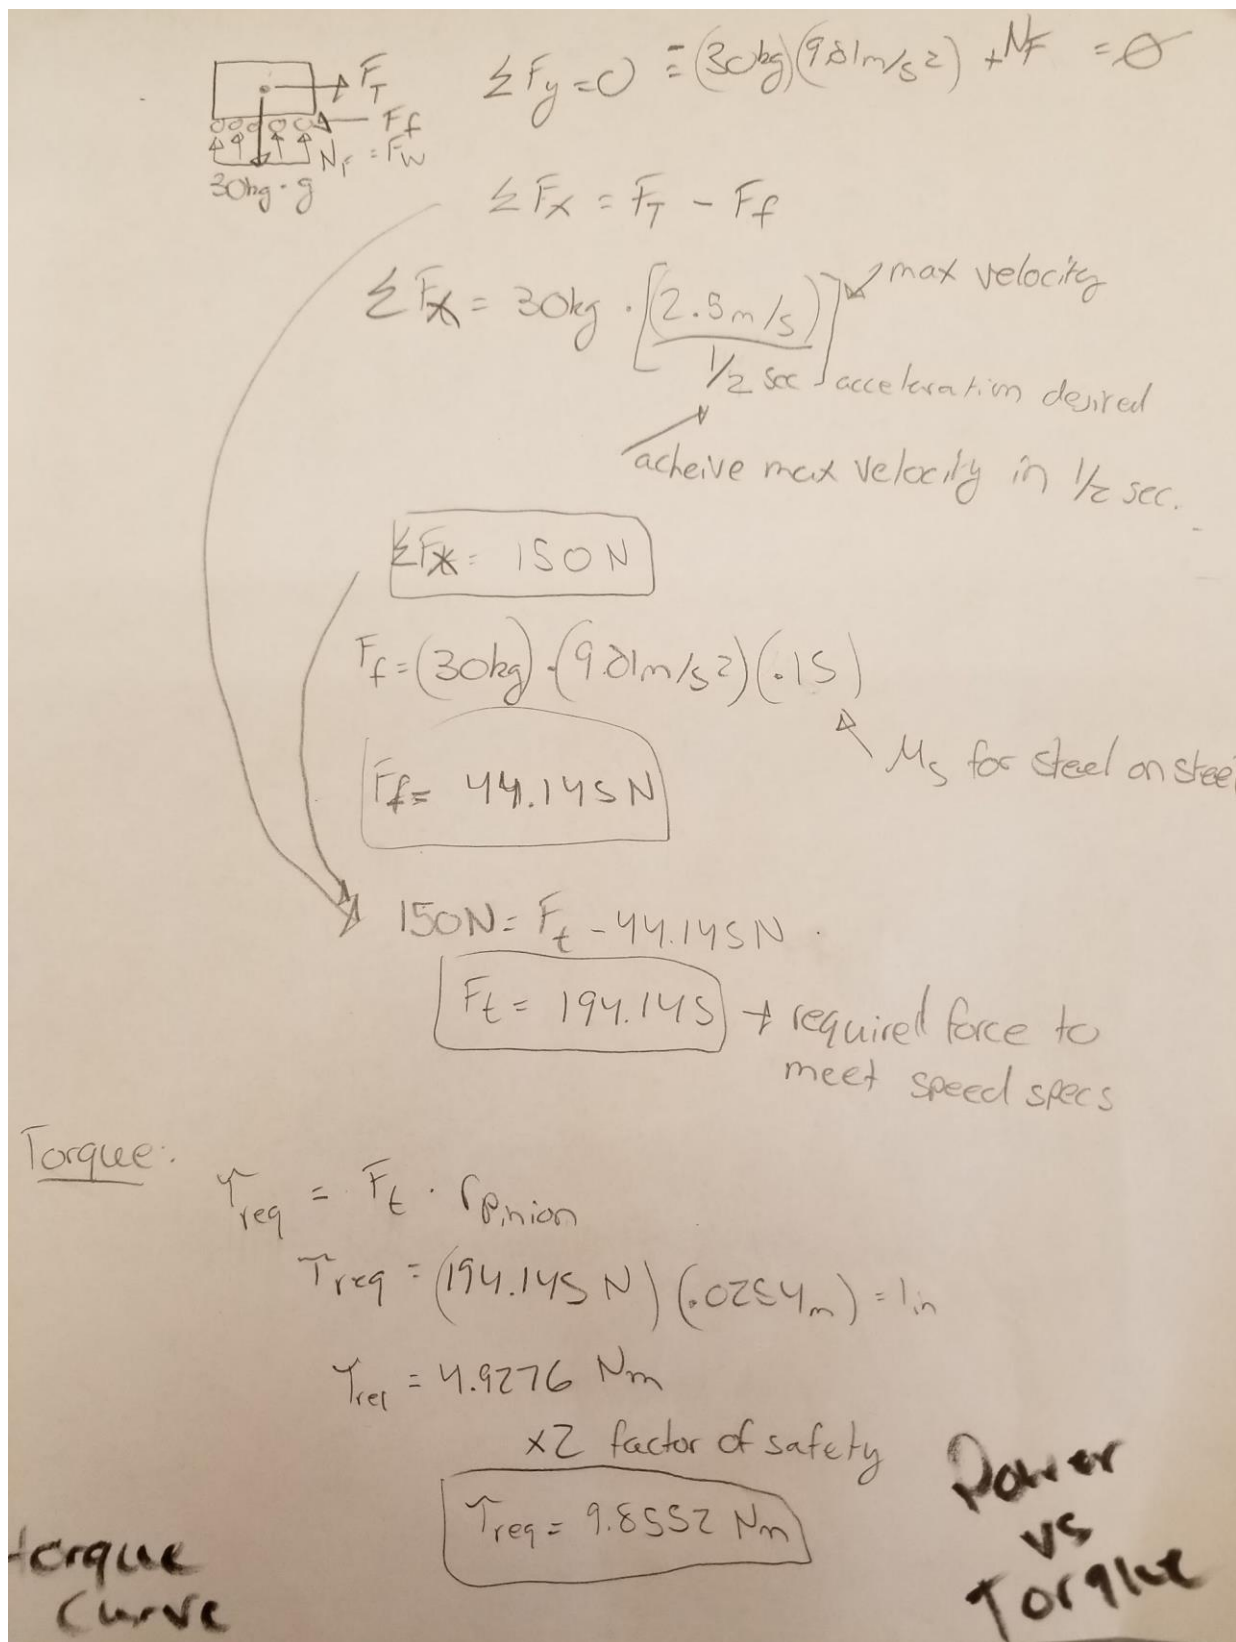 ΣFy=0 = -(30kg)(9.81m/s²) + NF = 0
FT
Ff
NF = FW
30kg·g
ΣFx = FT - Ff
ΣFx = 30kg · [(2.5m/s) / 1/2 sec]
max velocity
acceleration desired
acheive max velocity in 1/2 sec.
ΣFx = 150N
Ff = (30kg)·(9.81m/s²)(.15)
Ms for steel on steel
Ff = 44.145N
150N = Ft - 44.145N
Ft = 194.145 → required force to
meet speed specs
Torque:
τreq = Ft · rpinion
τreq = (194.145 N)(.0254m) = 1in
τreq = 4.9276 Nm
x2 factor of safety
τreq = 9.8552 Nm
Power
vs
Torque
torque
Curve